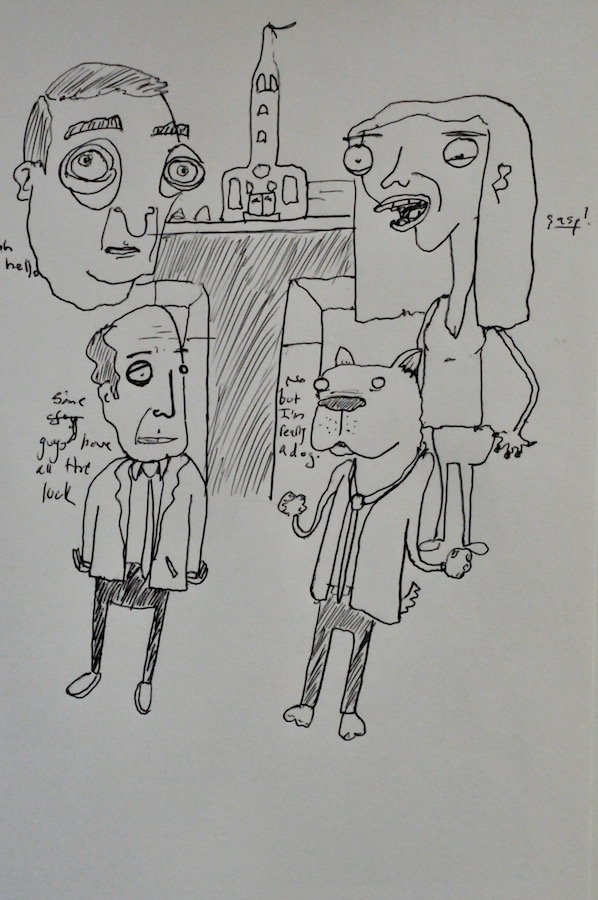 oh
hello
gasp!
Some
guys have
all the
luck
No
but
I'm
really
a dog.